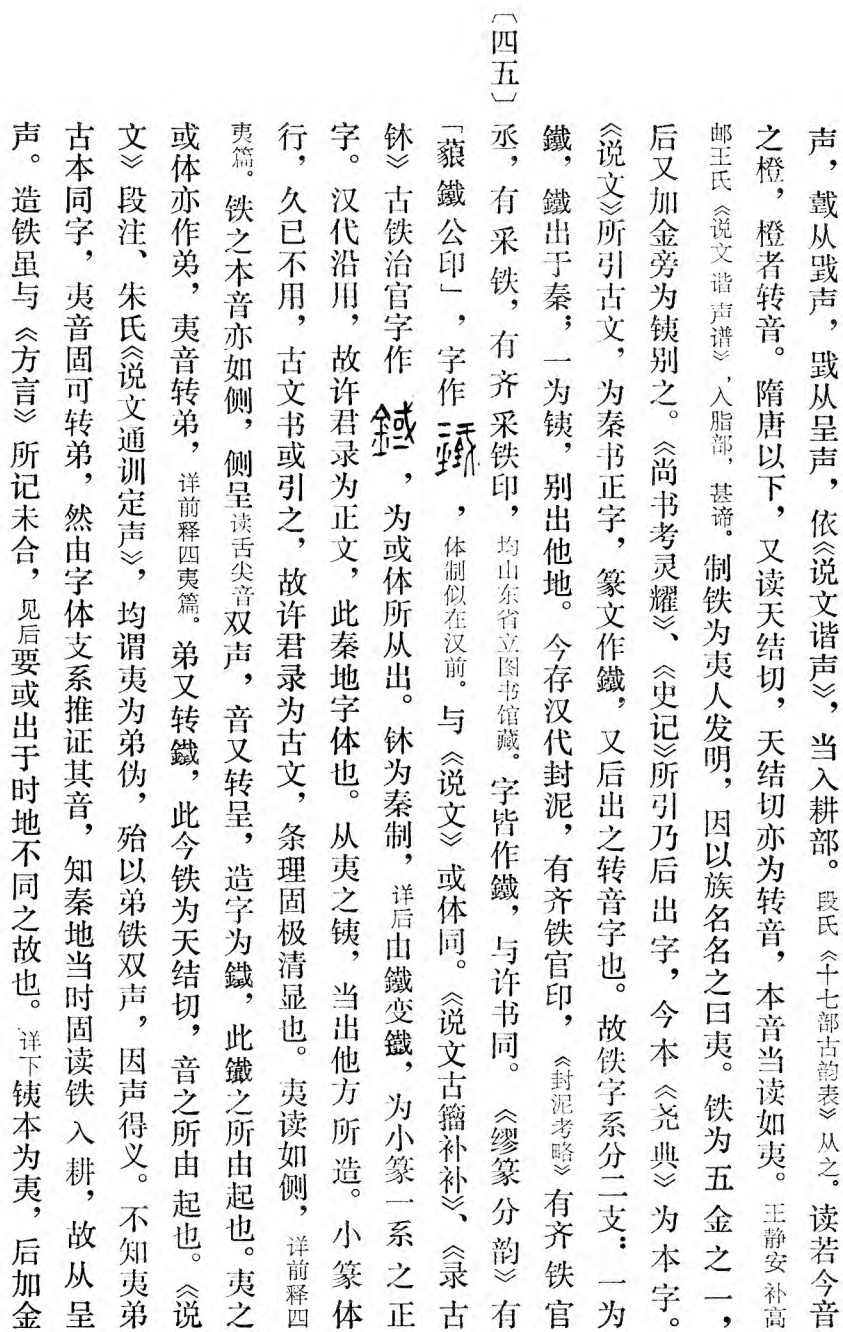 声，䥫从戥声，戥从呈声，依《说文谐声》，当入耕部。段氏《十七部古韵表》从之。读若今音
之橙，橙者转音。隋唐以下，又读天结切，天结切亦为转音，本音当读如夷。王静安补高
邮王氏《说文谐声谱》，入脂部，甚谛。制铁为夷人发明，因以族名名之曰夷。铁为五金之一，
后又加金旁为铗别之。《尚书考灵耀》、《史记》所引乃后出字，今本《尧典》为本字。
《说文》所引古文，为秦书正字，篆文作鐵，又后出之转音字也。故铁字系分二支：一为
鐵，鐵出于秦；一为銕，别出他地。今存汉代封泥，有齐铁官印，《封泥考略》有齐铁官
〔四五〕丞，有采铁，有齐采铁印，均山东省立图书馆藏。字皆作鐵，与许书同。《缪篆分韵》有
「藬鐵公印」，字作，体制似在汉前。与《说文》或体同。《说文古籀补补》、《录古
鉥》古铁治官字作，为或体所从出。鉥为秦制，详后由鐵变鐵，为小篆一系之正
字。汉代沿用，故许君录为正文，此秦地字体也。从夷之銕，当出他方所造。小篆体
行，久已不用，古文书或引之，故许君录为古文，条理固极清显也。夷读如侧，详前释四
夷篇。铁之本音亦如侧，侧呈读舌尖音双声，音又转呈，造字为鐵，此鐵之所由起也。夷之
或体亦作弟，夷音转弟，详前释四夷篇。弟又转鐵，此今铁为天结切，音之所由起也。《说
文》段注、朱氏《说文通训定声》，均谓夷为弟伪，殆以弟铁双声，因声得义。不知夷弟
古本同字，夷音固可转弟，然由字体支系推证其音，知秦地当时固读铁入耕，故从呈
声。造铁虽与《方言》所记未合，见后要或出于时地不同之故也。详下銕本为夷，后加金